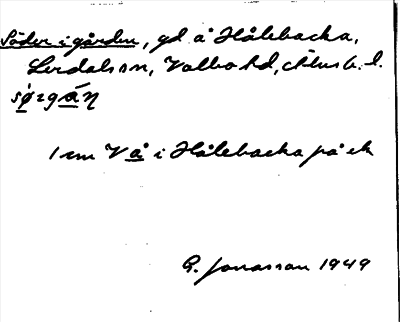 Söder i gården, gd å Hålebacka,
Lerdals sn, Valbo hd, Älvsb. l.
sø̀ʒgáṇ
1 sm V å i Hålebacka på ek
G. Jonasson 1949